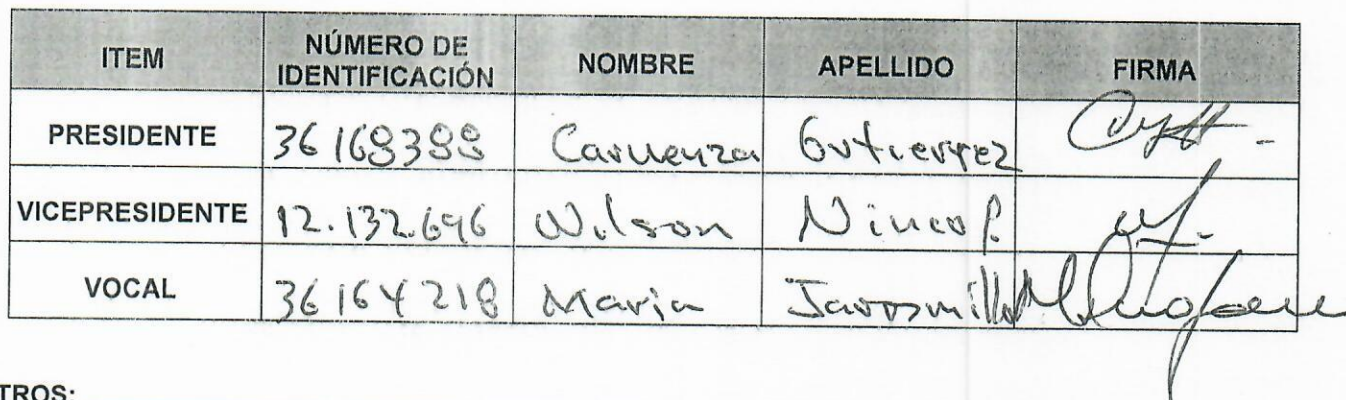 ITEM NÚMERO DE IDENTIFICACIÓN NOMBRE APELLIDO FIRMA
PRESIDENTE 36168388 Carmenza Gutierrez
VICEPRESIDENTE 12.132.646 Wilson Ninco P.
VOCAL 36164218 Maria Jaramillo
TROS: